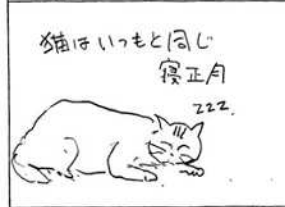 猫はいつもと同じ
寝正月
zzz.